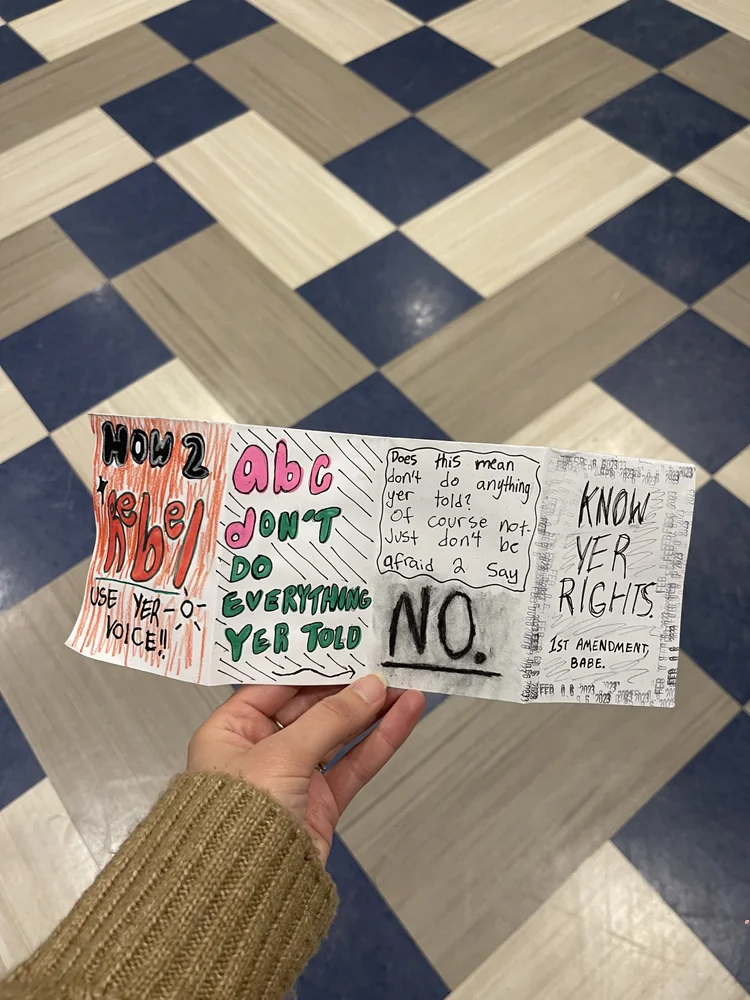 HOW 2
Rebel
USE YER
VOICE!!
abc
dON'T
DO
EVERYTHING
YER TOLD
Does this mean
don't do anything
yer told?
Of course not.
Just don't be
afraid 2 say
NO.
KNOW
YER
RIGHTS.
1ST AMENDMENT,
BABE.
FEB 06 2023